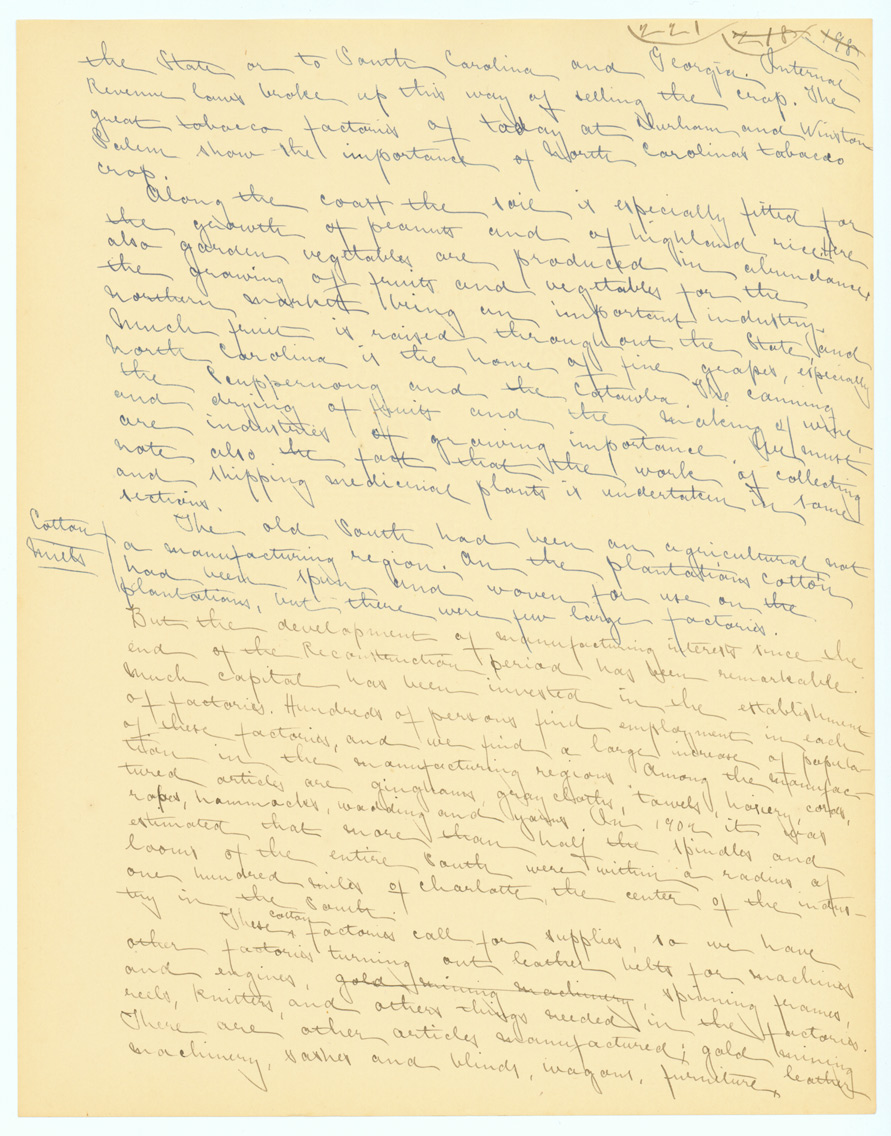 221 218 198
the State or to South Carolina and Georgia. Internal
Revenue laws broke up this way of selling the crop. The
great tobacco factories of today at Durham and Winston
Salem show the importance of North Carolina's tobacco
crop.
Along the coast the soil is especially fitted for
the growth of peanuts and of highland rice. Here
also garden vegetables are produced in abundance,
the growing of fruits and vegetables for the
northern market being an important industry.
Much fruit is raised throughout the State, and
North Carolina is the home of fine grapes, especially
the Scuppernong and the Catawba. The canning
and drying of fruits and the making of wine,
are industries of growing importance. We must
note also the fact that the work of collecting
and shipping medicinal plants is undertaken in some
sections.
Cotton
Mills
The old South had been an agricultural, not
a manufacturing region. On the plantations cotton
had been spun and woven for use on the
plantations, but there were few large factories.
But the development of manufacturing interests since the
end of the Reconstruction period has been remarkable.
Much capital has been invested in the establishment
of factories. Hundreds of persons find employment in each
of these factories, and we find a large increase of popula-
tion in the manufacturing regions. Among the manufac-
tured articles are ginghams, gray cloths, towels, hosiery, cords,
ropes, hammocks, wadding and yarns. In 1902 it was
estimated that more than half the spindles and
looms of the entire South were within a radius of
one hundred miles of Charlotte, the center of the indus-
try in the South.
These cotton factories call for supplies, so we have
other factories turning out leather belts for machines
and engines, gold mining machinery, spinning frames,
reels, knitters, and others things needed in the factories.
There are other articles manufactured; gold mining
machinery, sashes and blinds, wagons, furniture, leather